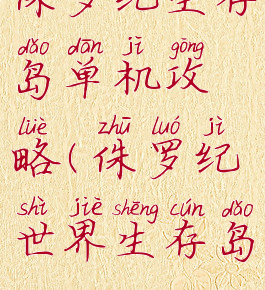 侏罗纪生存
dǎo dān jī gōng
岛单机攻
lüè zhū luó jì
略(侏罗纪
shì jiè shēng cún dǎo
世界生存岛